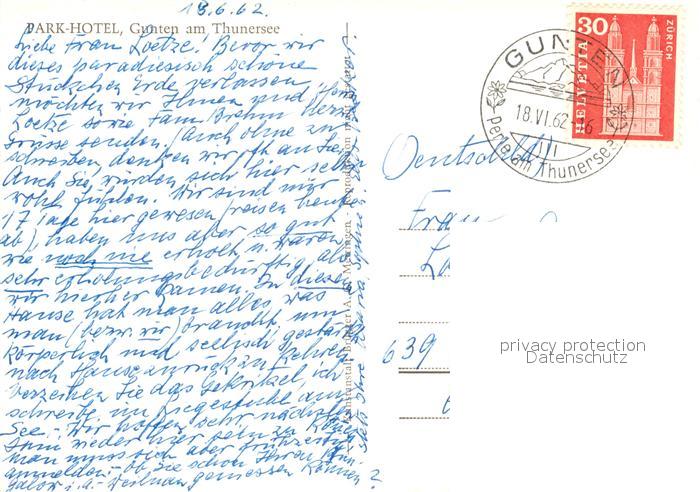 18.6.62.
PARK-HOTEL, Gunten am Thunersee
Liebe Frau Loetze! Bevor wir
dieses paradiesisch schöne
Stückchen Erde verlassen
möchten wir Ihnen und Herrn
Loetze sowie Fam. Brehm herzl.
Grüsse senden. Auch ohne zu
schreiben, denken wir oft an Sie.
Auch Sie würden sich hier sehr
wohl fühlen. Wir sind nur
17 Tage hier gewesen (reisen heute
ab), haben uns aber so gut
wie noch nie erholt u. waren
sehr erholungsbedürftig, als
wir hierher kamen. In diesem
Hause hat man alles was
man (bezw. wir) braucht, um
körperlich und seelisch gestärkt
nach Hause zurückzukehren.
Verzeihen Sie das Gekritzel, ich
schreibe im Liegestuhle am
See. Wir hoffen sehr nächsten
Juni wieder hier sein zu können,
man muss sich aber frühzeitig
anmelden. Ob Sie schon Ihren
u. Weihnau genossen können?
Stets Ihre
HELVETIA
30
ZÜRICH
GUNTEN
18.VI.62-16
Perle am Thunersee
Deutschl.
Frau
639
privacy protection
Datenschutz